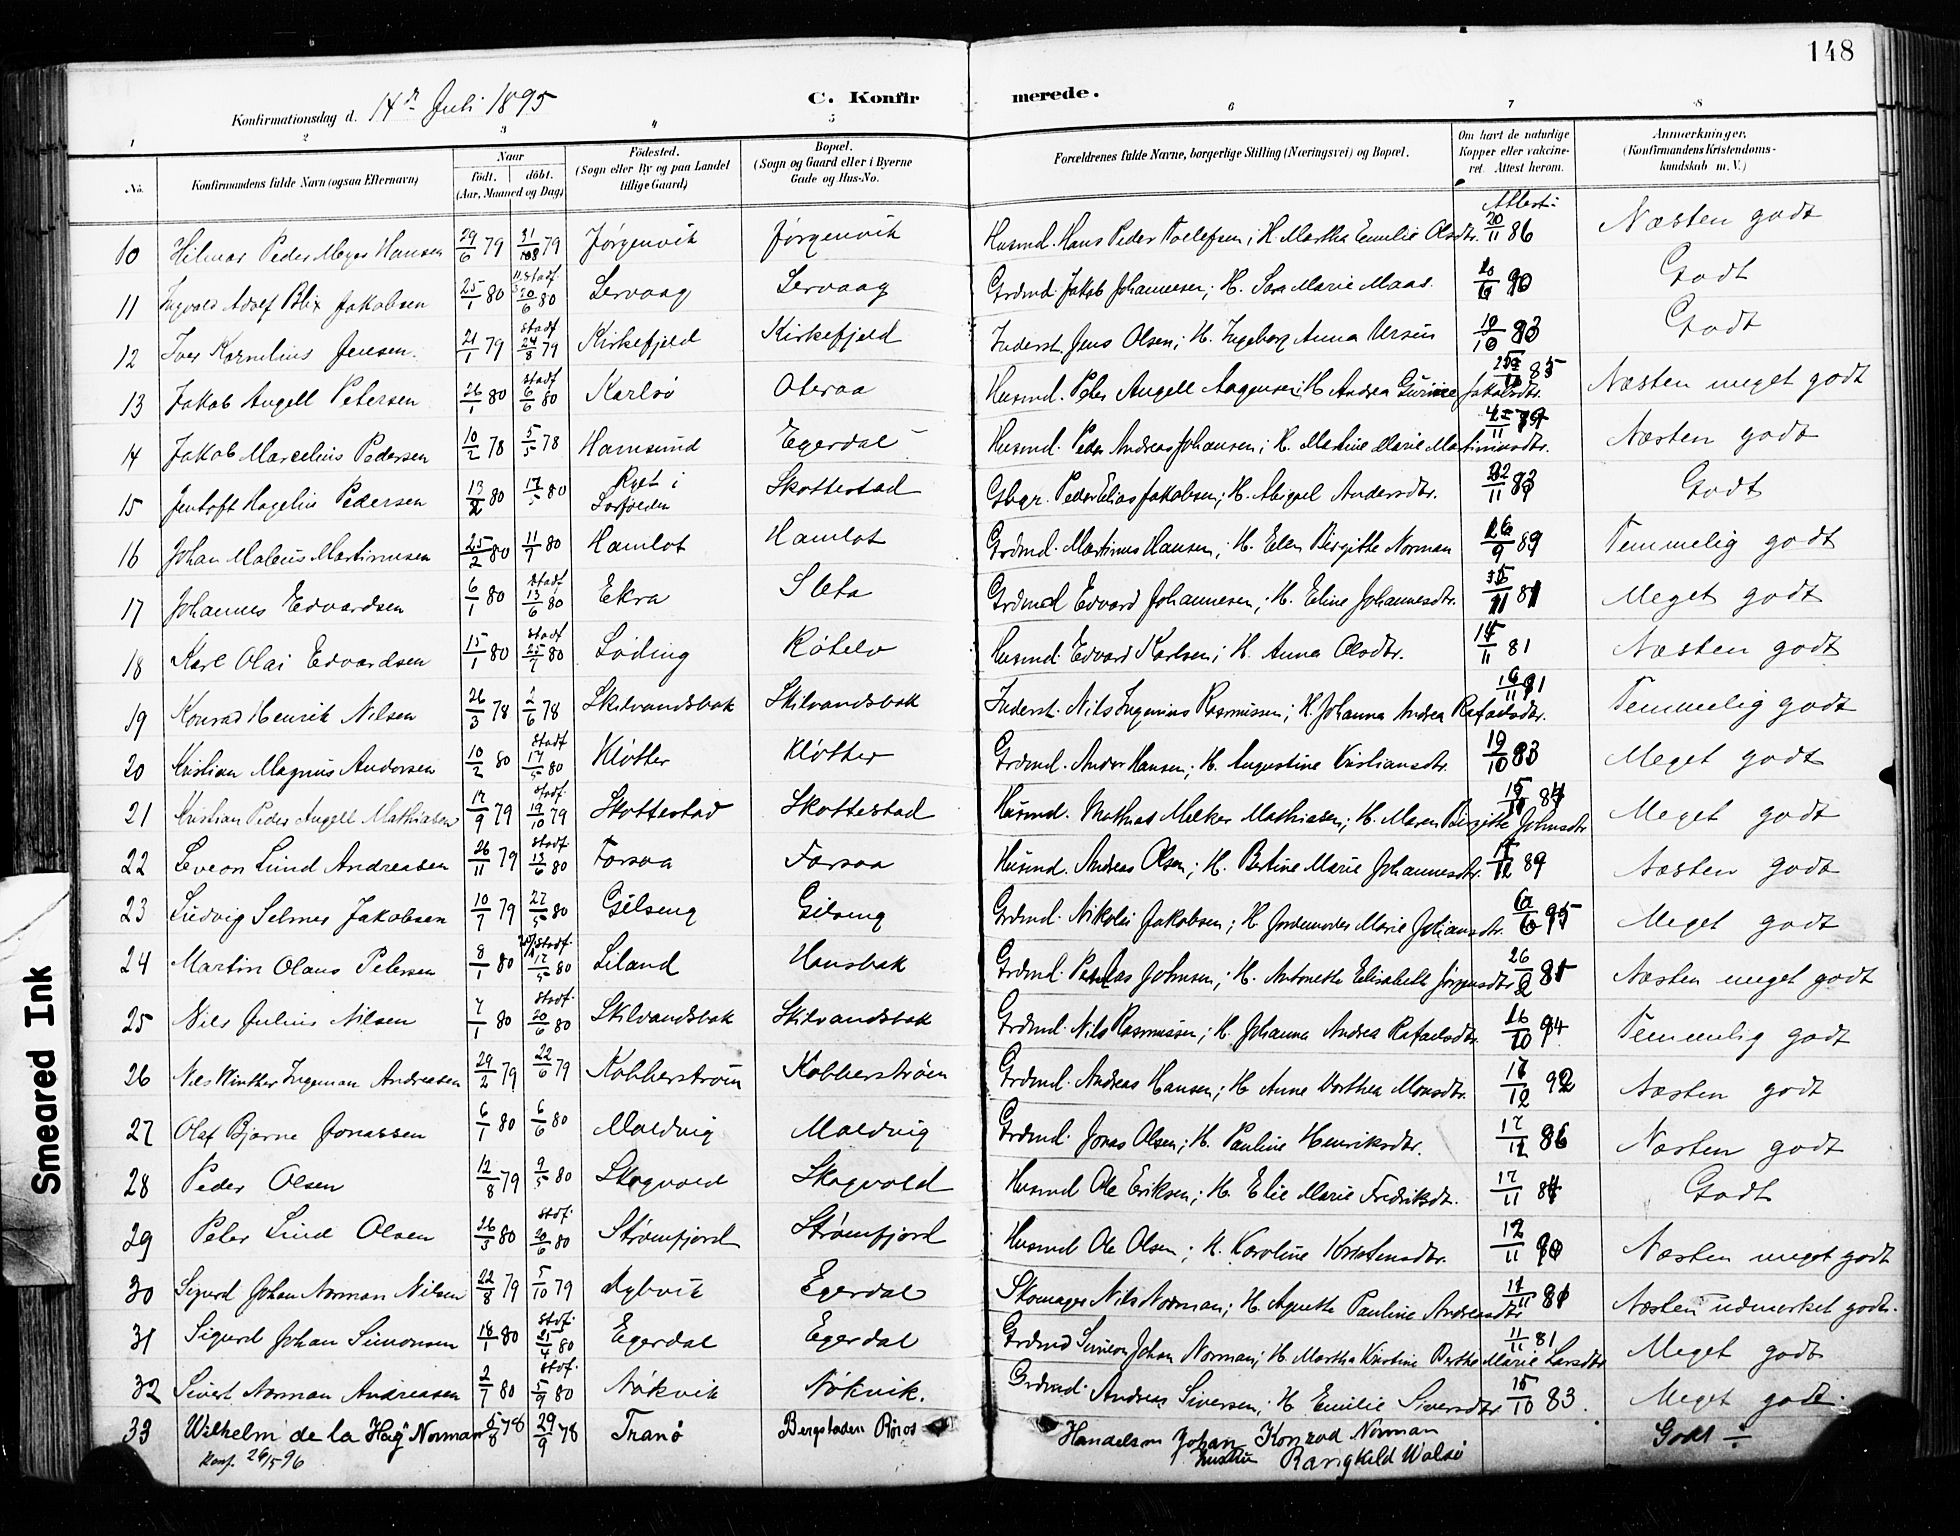 148
Konfirmationsdag d. 14de Juli 1895
C. Konfirmerede.
1 2 3 4 5 6 7 8
No. Konfirmandens fulde Navn (ogsaa Efternavn) Naar födt. döbt. (Aar, Maaned og Dag) Födested. (Sogn eller By og paa Landet tillige Gaard) Bopæl. (Sogn og Gaard eller i Byerne Gade og Hus-No. Forældrenes fulde Navne, borgerlige Stilling (Næringsvei) og Bopæl. Om havt de naturlige Kopper eller vaccineret. Attest herom. Anmærkninger. (Konfirmandens Kristendomskundskab m. V.)
Attest:
10 Hilmar Peder Meyer Hansen 29/6 79 31/8 79 Jørgenvik Jørgenvik Husmd. Hans Peder Tollefsen; H. Martha Emilie Olsdtr. 20/11 86 Næsten godt
11 Ingvald Adolf Blix Jakobsen 25/1 80 stadf 20/6 80 Lervaag Lervaag Grdmd. Jakob Johannesen; H. Sara Marie Maas. 90 Godt
12 Iver Kornelius Jensen. 21/1 79 stadf 24/8 79 Kirkefjeld Kirkefjeld Inderst. Jens Olsen; H. Ingeborg Anna Ursin 19/10 83 Godt
13 Jakob Angell Petersen 26/1 80 stadf 6/6 80 Karlsö Oteraa Husmd. Peter Angell Aagensen; H. Andrea Gurine Jakobsdtr. 85 Næsten meget godt
14 Jakob Marcelius Pedersen 10/2 78 5/5 78 Hamsund Egerdal Husmd. Peder Andreas Johansen; H. Martine Marie Martinusdtr. 79 Næsten godt
15 Jentoft Hagelin Pedersen 13/2 80 17/5 80 Ryet i Sørfjorden Skottestad Gbgr. Peder Elias Jakobsen; H. Abigael Andersdtr. 22/11 83 Godt
16 Johan Maleus Martinusen 25/2 80 11/7 80 Hamlot Hamlot Grdmd. Martinus Hansen; H. Elen Birgitte Norman 26/9 89 Temmelig godt
17 Johannes Edvardsen 6/1 80 stadf 13/6 80 Ekra Sleta Grdmd Edvard Johannesen; H. Eline Johannesdtr. 81 Meget godt
18 Karl Olai Edvardsen 15/1 80 stadf 25/7 80 Løding Røtelv Husmd. Edvard Karlsen; H. Anna Olsdtr. 14/11 81 Næsten godt
19 Konrad Henrik Nilsen 26/3 78 2/6 78 Skilvandsbak Skilvandsbak Inderst. Nils Ingenius Rasmussen; H. Johanna Andrea Rafaelsdtr. 16/11 91 Temmelig godt
20 Kristian Magnus Andersen 10/2 80 stadf 17/5 80 Kløtter Kløtter Grdmd. Ander Hansen; H. Augustine Kristiansdtr. 19/10 83 Meget godt
21 Kristian Peder Angell Mathiasen 17/9 79 stadf 19/10 79 Skottestad Skottestad Husmd. Mathias Melker Mathiasen; H. Maren Birgitte Johnsdtr 84 Meget godt
22 Leveon Lund Andreasen 26/11 79 stadf 13/6 80 Forsaa Forsaa Husmd. Andreas Olsen; H. Bertine Marie Johannesdtr. 89 Næsten godt
23 Ludvig Selmer Jakobsen 10/7 79 27/5 80 Gilseng Gilseng Grdmd. Nikolai Jakobsen; H. Jordemoder Marie Johansdtr. 95 Meget godt
24 Martin Olaus Petersen 8/1 80 stadf. 17/5 80 Liland Hansbak Grdmd. Johnsen; H. Antonette Elisabeth Jørgensdtr 26/2 81 Næsten meget godt
25 Nils Julius Nilsen 7/1 80 stadf. 20/6 80 Skilvandsbak Skilvandsbak Grdmd. Nils Rasmussen; H. Johanna Andrea Rafaelsdtr. 16/10 94 Temmelig godt
26 Nils Winther Ingeman Andreasen 29/2 79 22/6 79 Kobberstrøm Kobberstrøm Grdmd. Andreas Hansen; H. Anne Dorthea Monsdtr. 17/12 92 Næsten godt
27 Olaf Bjarne Jonassen 6/1 80 6/6 80 Maldvig Maldvig Grdmd. Jonas Olsen; H. Pauline Henriksdtr. 17/12 86 Næsten godt
28 Peder Olsen 12/8 79 9/5 80 Skogvold Skogvold Husmd Ole Eriksen; H. Elie Marie Fredriksdtr. 17/11 84 Godt
29 Peter Lind Olsen 26/3 80 stdf. 20/6 80 Strømfjord Strømfjord Husmd Ole Olsen; H. Karoline Kristensdtr. 12/11 90 Næsten meget godt
30 Sigurd Johan Norman Nilsen 22/8 79 5/10 79 Nybvik Egerdal Skomager Nils Norman; H. Agnethe Pauline Andreasdtr 11/11 81 Næsten udmerket godt.
31 Sigurd Johan Simonsen 18/1 80 stdf. 25/4 80 Egerdal Egerdal Grdmd Simeon Johan Norman; H. Martha Kristine Berthe Marie Larsdtr 11/11 81 Meget godt
32 Sivert Norman Andreasen 2/7 80 stdf. 5/9 80 Nökvik Nökvik. Grdmd. Andreas Siversen; H. Emilie Siversdtr 15/10 83. Meget godt.
33 Wilhelm de la Hag Norman 5/8 78 29/9 78 Tranö Bergstaden Røros Handelsm Johan Konrad Norman Godt ÷
konf. 26/5 96 hustru Rangkild Walsö
Smeared Ink